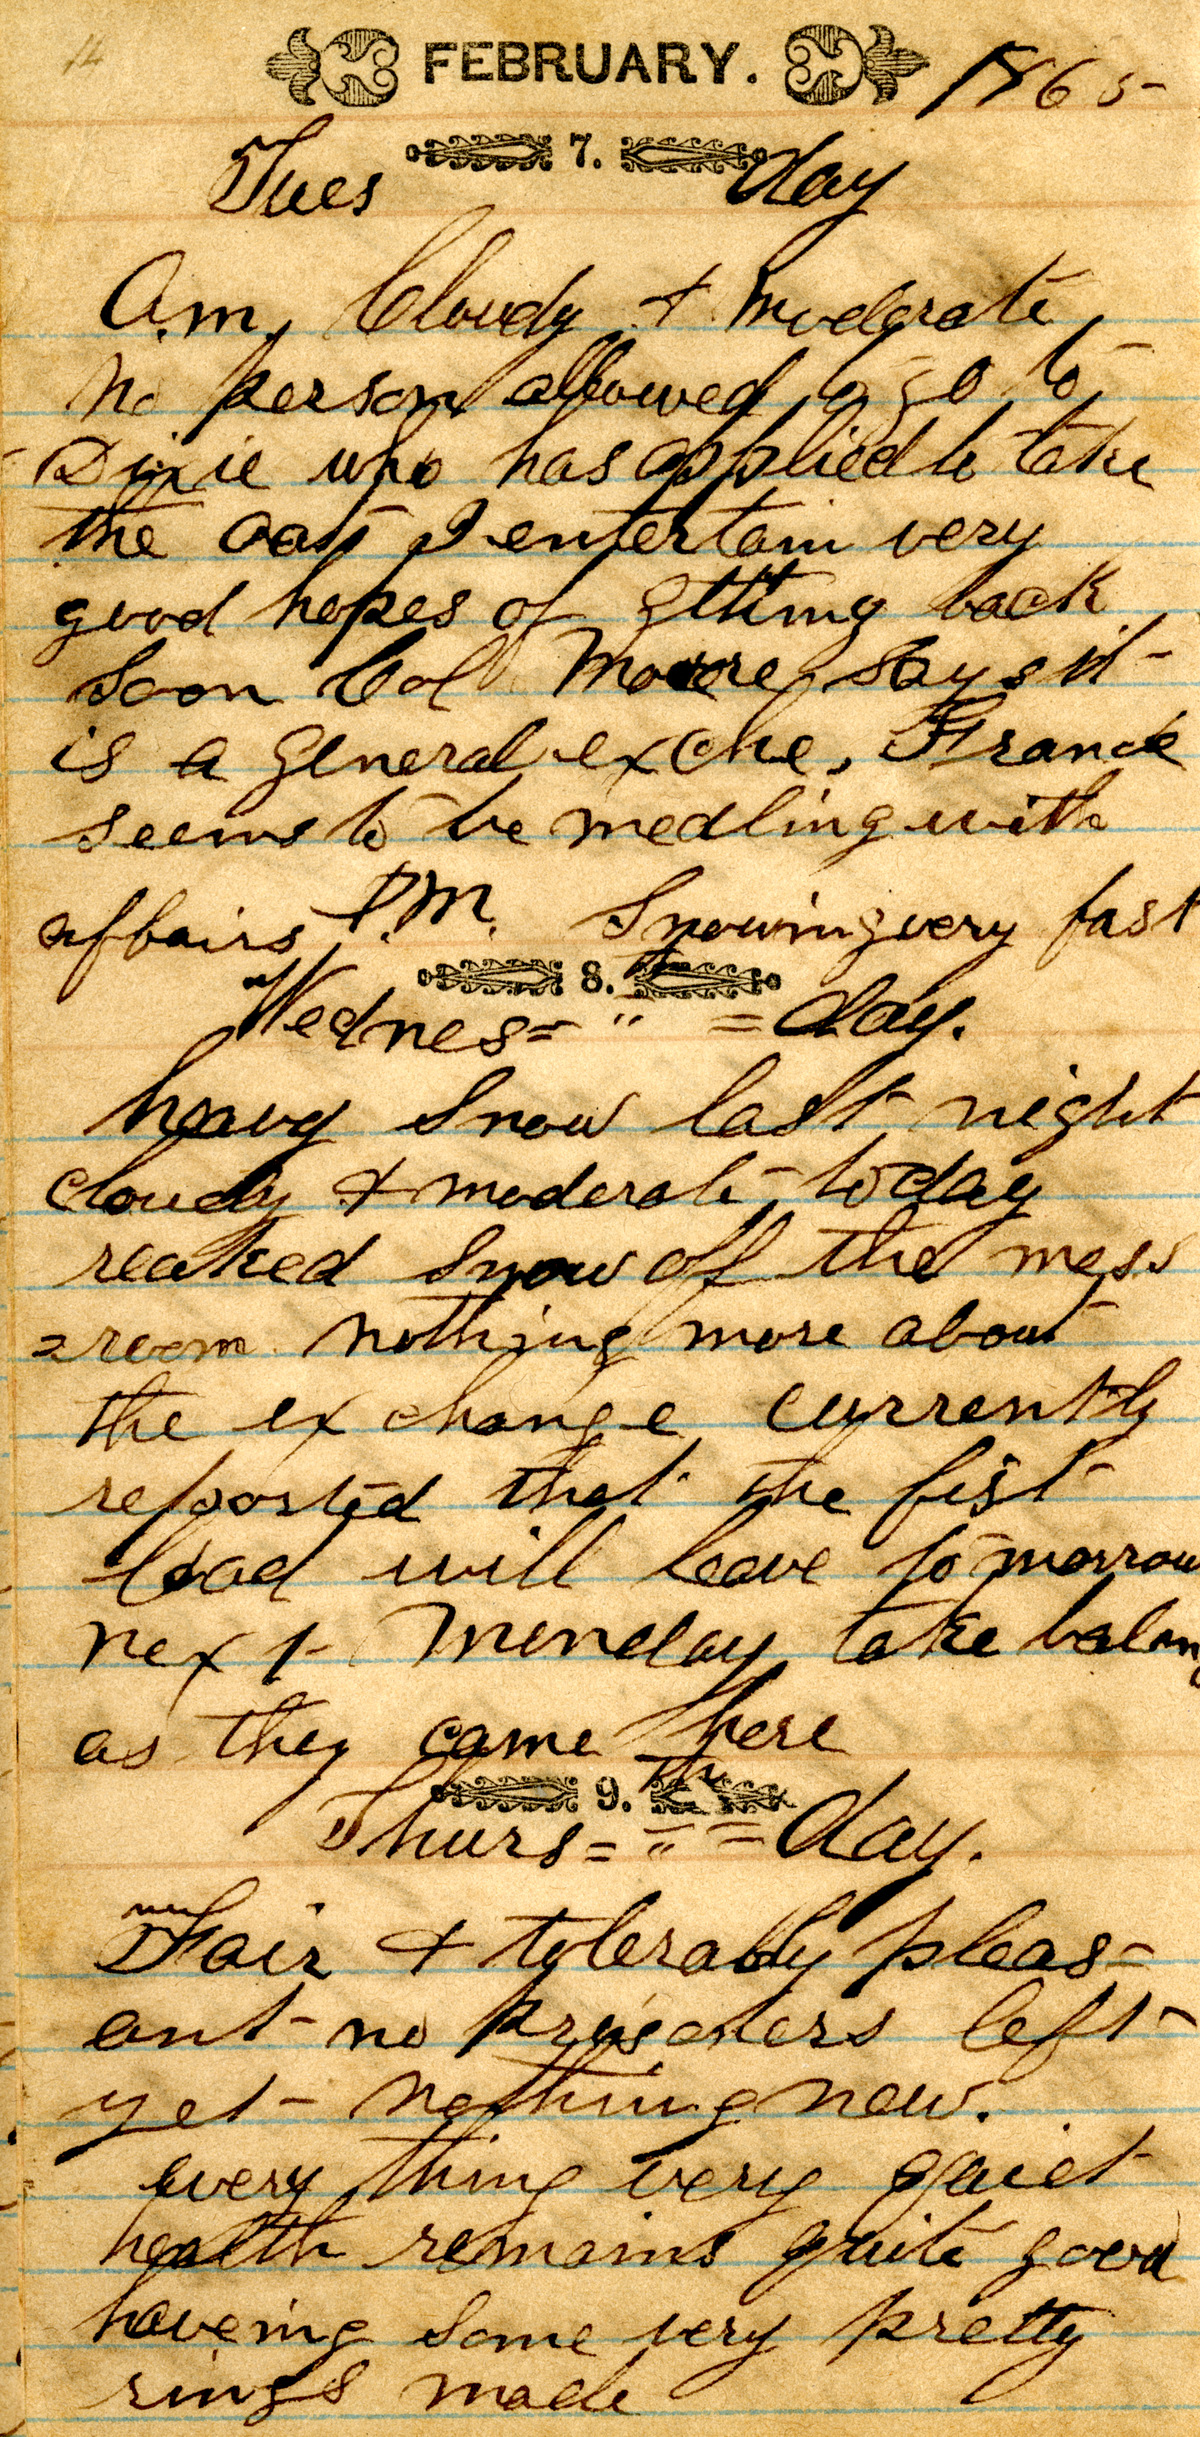 14
FEBRUARY. 1865
7.
Tues day
A.m, Cloudy & moderate,
no person allowed to go to
Dixie who has applied to take
the oath I entertain very
good hopes of gtting back
soon Col Moore says it
is a general exche, France
seems to be medling with
affairs, P.M. Snowing very fast
8.
Wednes= " =day.
heavy snow last night
cloudy & moderate, today
reaked snow of the mess
=room nothing more about
the exchange, currently
reported that the fist
load will leave to morrow
next Monday take balanc
as they came here
9.
Thurs= " =day.
Fair & tolerably pleas-
ant no prisoners left
yet - nothing new.
every thing very quiet
health remains quite good
haveing some very pretty
rings made